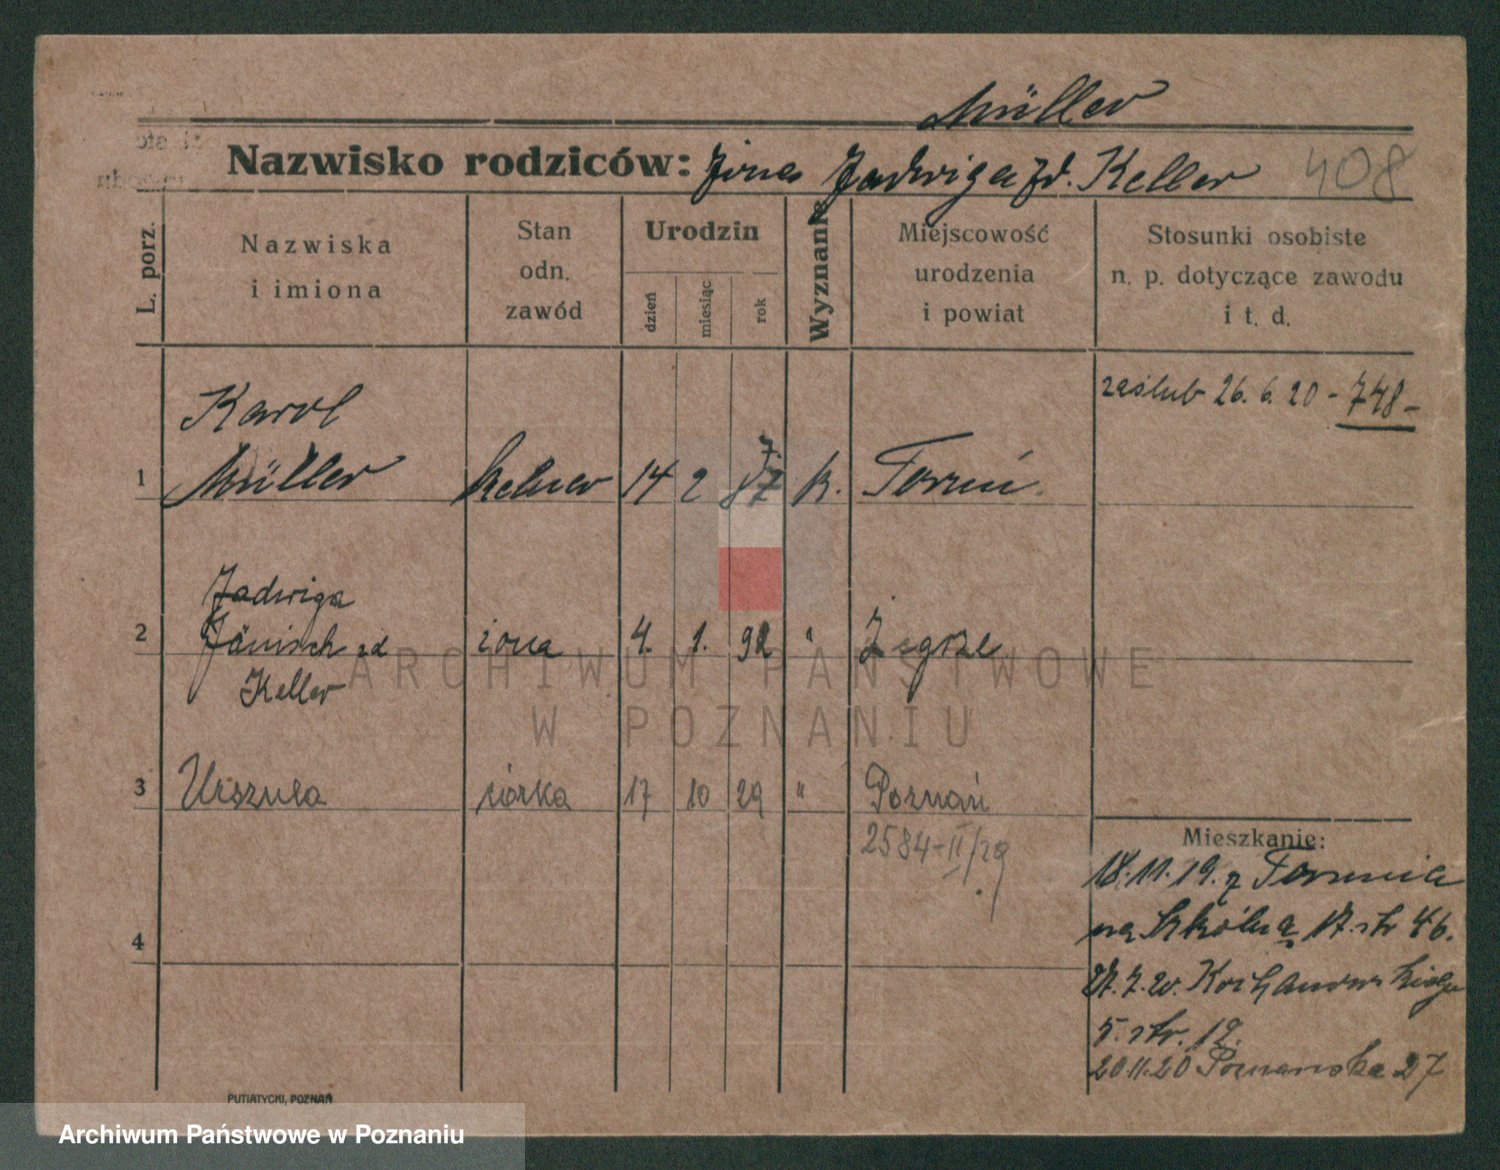 Müller
Nazwisko rodziców: żona Jadwiga zd. Keller 408
L. porz.
Nazwiska
i imiona
Stan
odn.
zawód
Urodzin
dzień
miesiąc
rok
Wyznanie
Miejscowość
urodzenia
i powiat
Stosunki osobiste
n. p. dotyczące zawodu
i t. d.
zaślub 26. 6. 20 - 748 -
Karol
1 Müller kelner 14 2 87 k. Toruń
Jadwiga
2 Jänisch zd żona 4. 1. 92 " Żegrze
Keller
3 Urszula córka 17 10 29 " Poznań
2584-II/29
4
Mieszkanie:
18.11.19. z Torunia
na Szkólną 17. str 46.
27.7.20. Kochanowskiego
5. str. 12.
20.11.20 Poznańska 27
PUTIATYCKI, POZNAŃ
ARCHIWUM PAŃSTWOWE
W POZNANIU
Archiwum Państwowe w Poznaniu